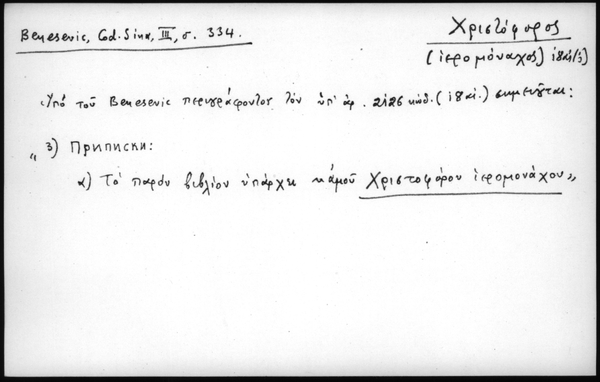 Benesevic, Cod. Sina, III, σ. 334.
Χριστόφορος
(ἱερομόναχος) 18αι/3)
Ὑπὸ τοῦ Benesevic περιγράφοντος τὸν ὑπ' ἀρ. 2126 κώδ. (18 αἰ.) σημειοῦται:
„ 3) Приписки:
α) Τὸ παρὸν βιβλίον ὑπάρχει κἀμοῦ Χριστοφόρου ἱερομονάχου„